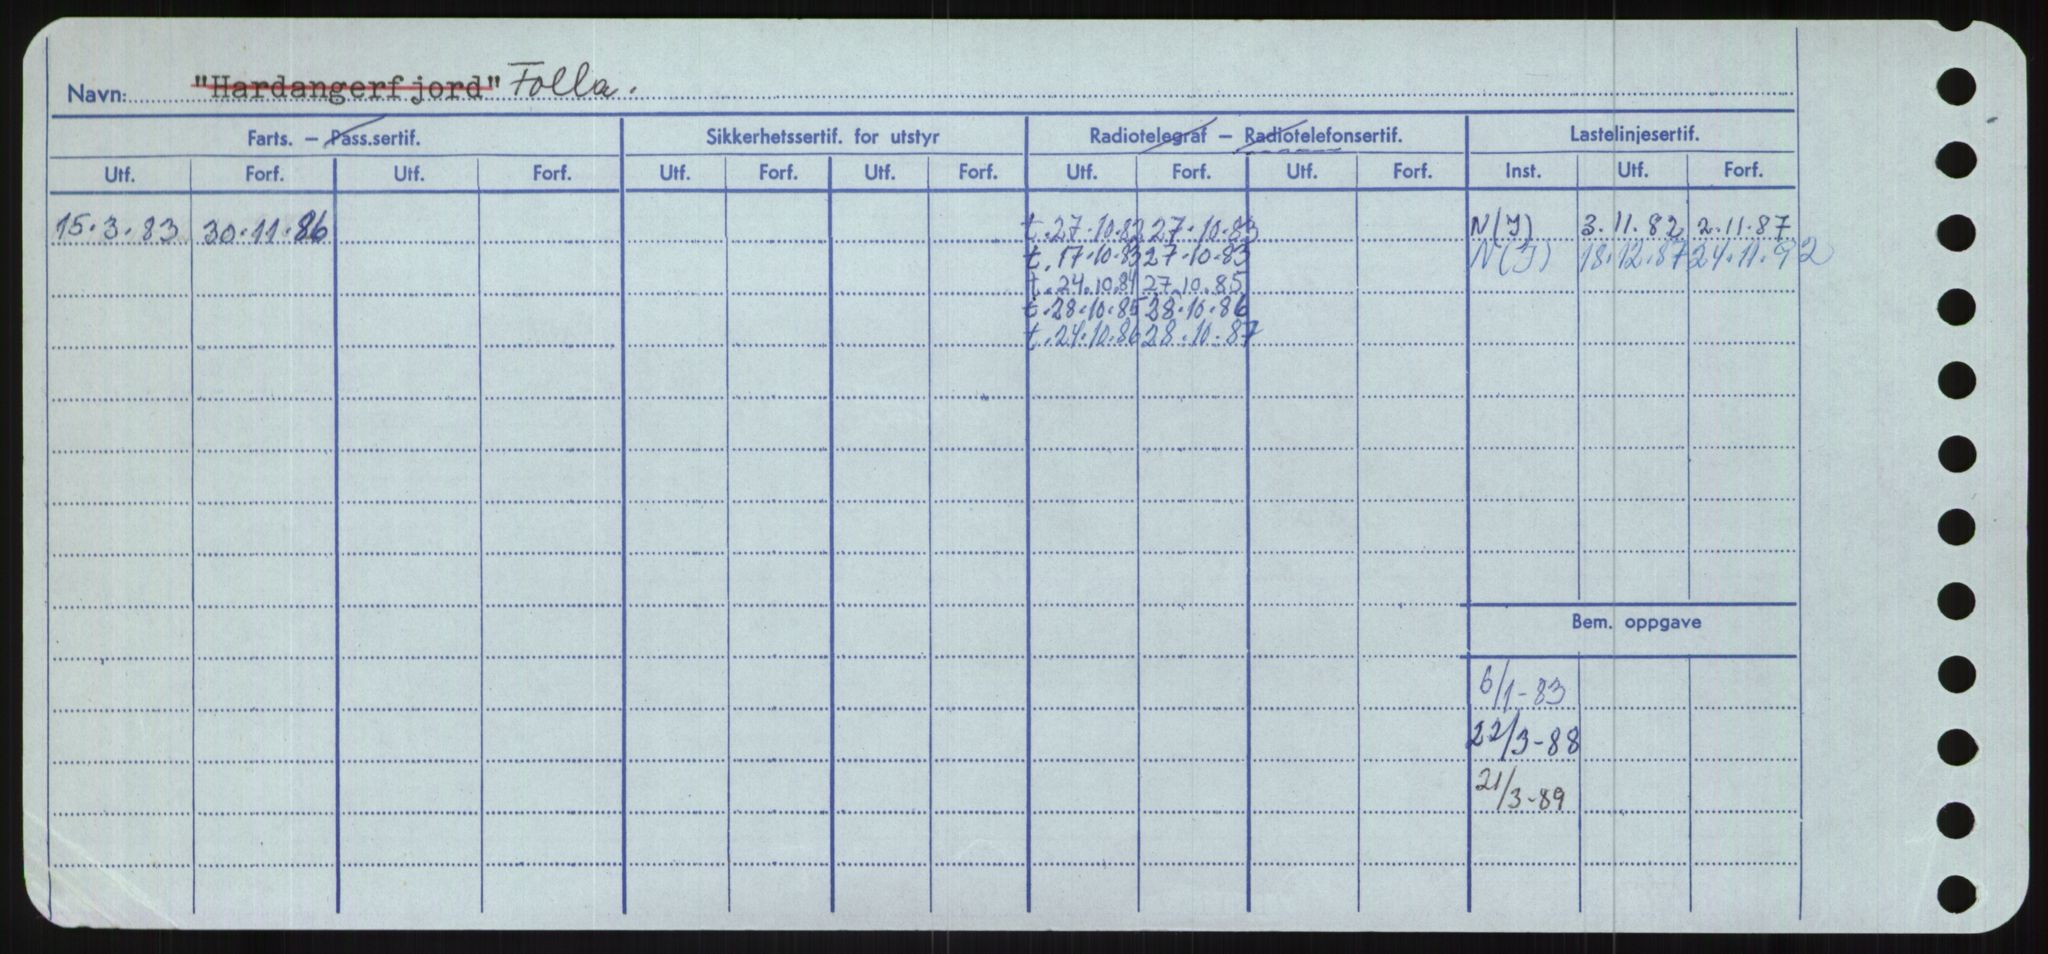 Navn: "Hardangerfjord" Folla.
Farts. — Pass.sertif. Sikkerhetssertif. for utstyr Radiotelegraf — Radiotelefonsertif. Lastelinjesertif.
Utf. Forf. Utf. Forf. Utf. Forf. Utf. Forf. Utf. Forf. Utf. Forf. Inst. Utf. Forf.
15.3.83 30.11.86 t.27.10.82 27.10.83 N(I) 3.11.82 2.11.87
t.17.10.83 27.10.83 N(I) 18.12.87 24.11.92
t.24.10.84 27.10.85
t.28.10.85 28.10.86
t.24.10.86 28.10.87
Bem. oppgave
6/1-83
22/3-88
21/3-89